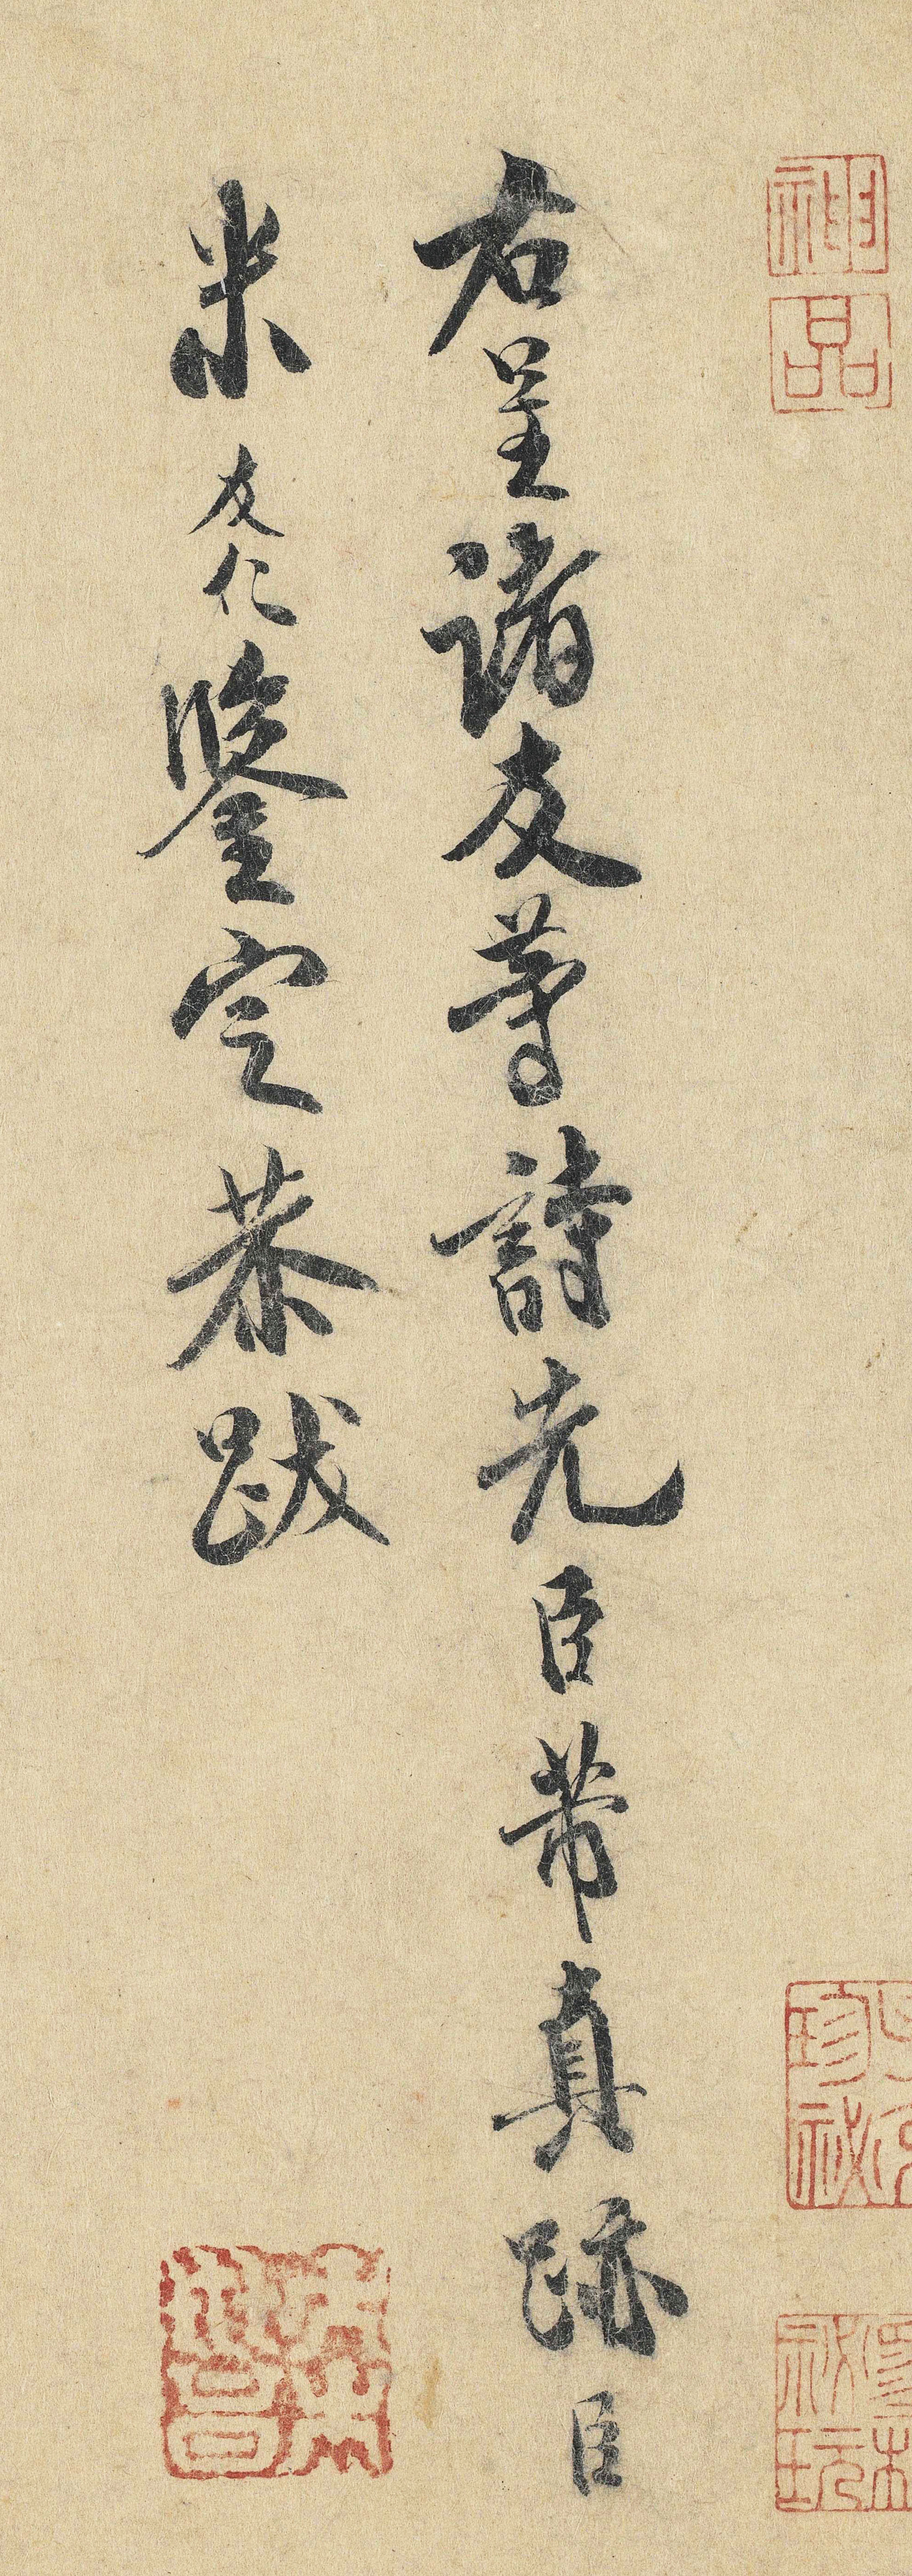 右呈諸友等詩先臣芾真跡臣
米友仁鑒定恭跋
神品